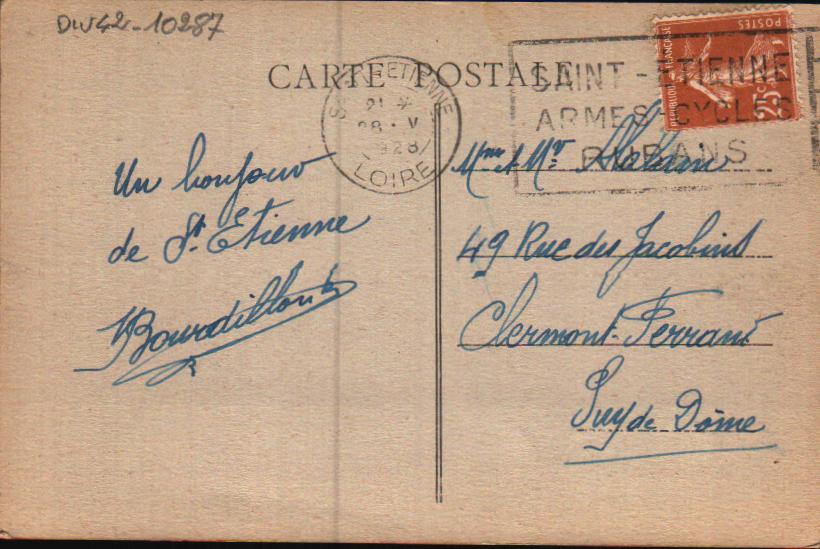 DIV42-10287
CARTE POSTALE
ST ETIENNE
21 *
28 · V
1928
LOIRE
SAINT-ETIENNE
ARMES-CYCLES
RUBANS
POSTES
REPUBLIQUE FRANÇAISE
25c
Un bonjour
de St. Etienne
Bourdillon
Mme et Mr.
49 Rue des Jacobins
Clermont-Ferrand
Puy de Dôme